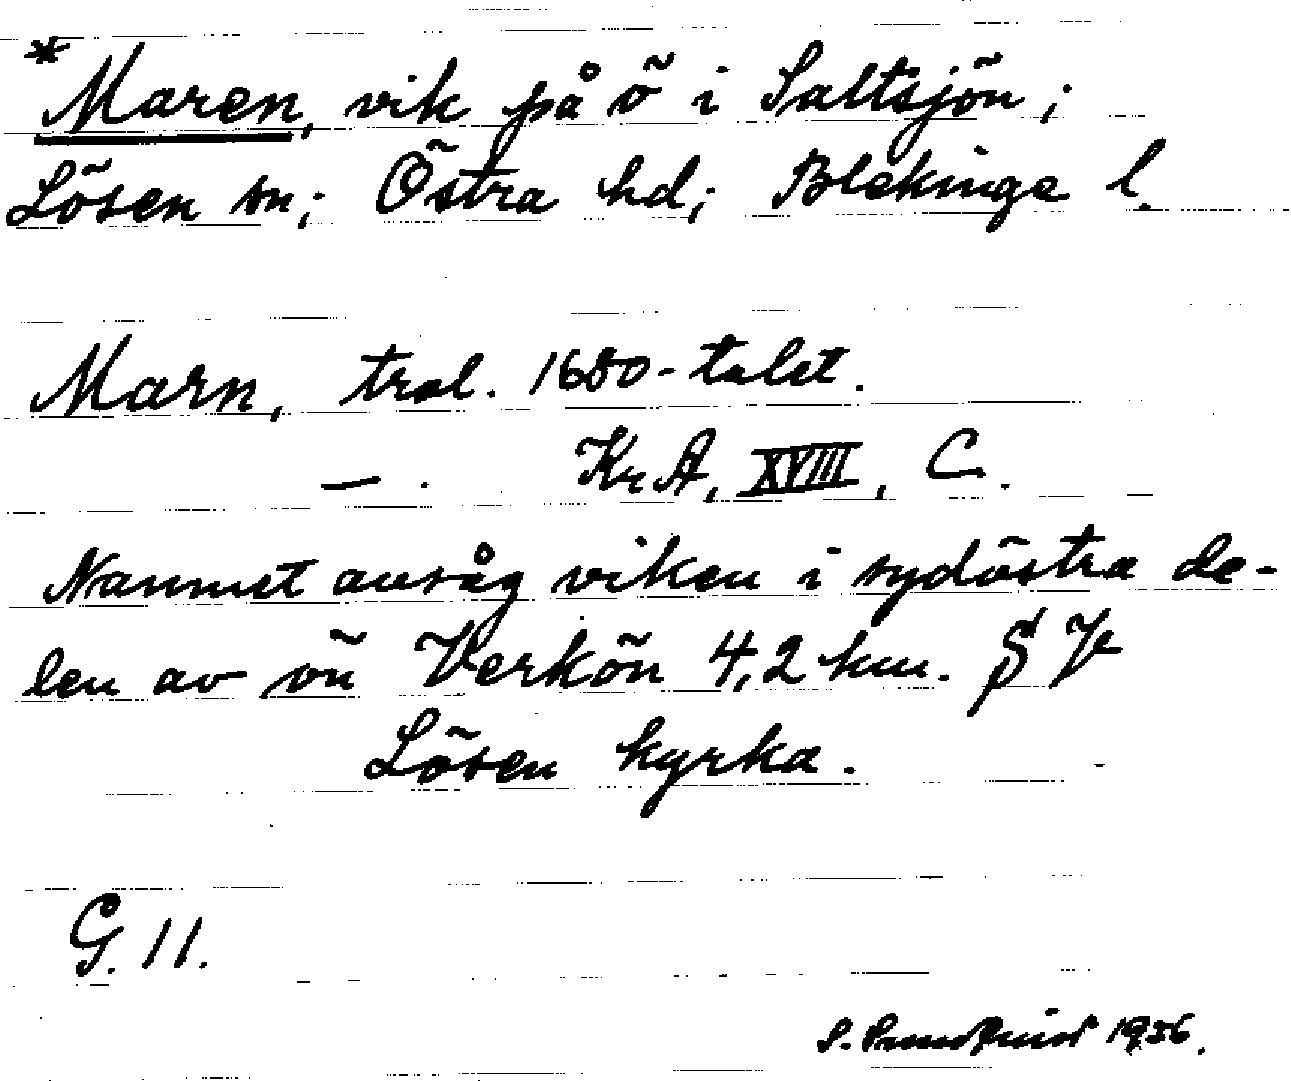 *Maren, vik på ö i Saltsjön;
Lösen sn; Östra hd; Blekinge l.
Marn, trol. 1680-talet.
— . KrA, XVIII, C.
Namnet avsåg viken i sydöstra de-
len av ön Verkön 4,2 km. S V
Lösen kyrka.
G. 11.
S. 1956.